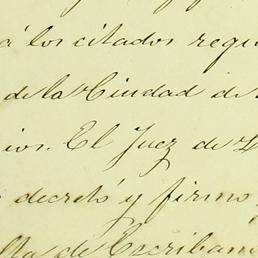 á los citados requ
de la Ciudad de
ios. El Juez de
decretó y firmo
lta de Escriban